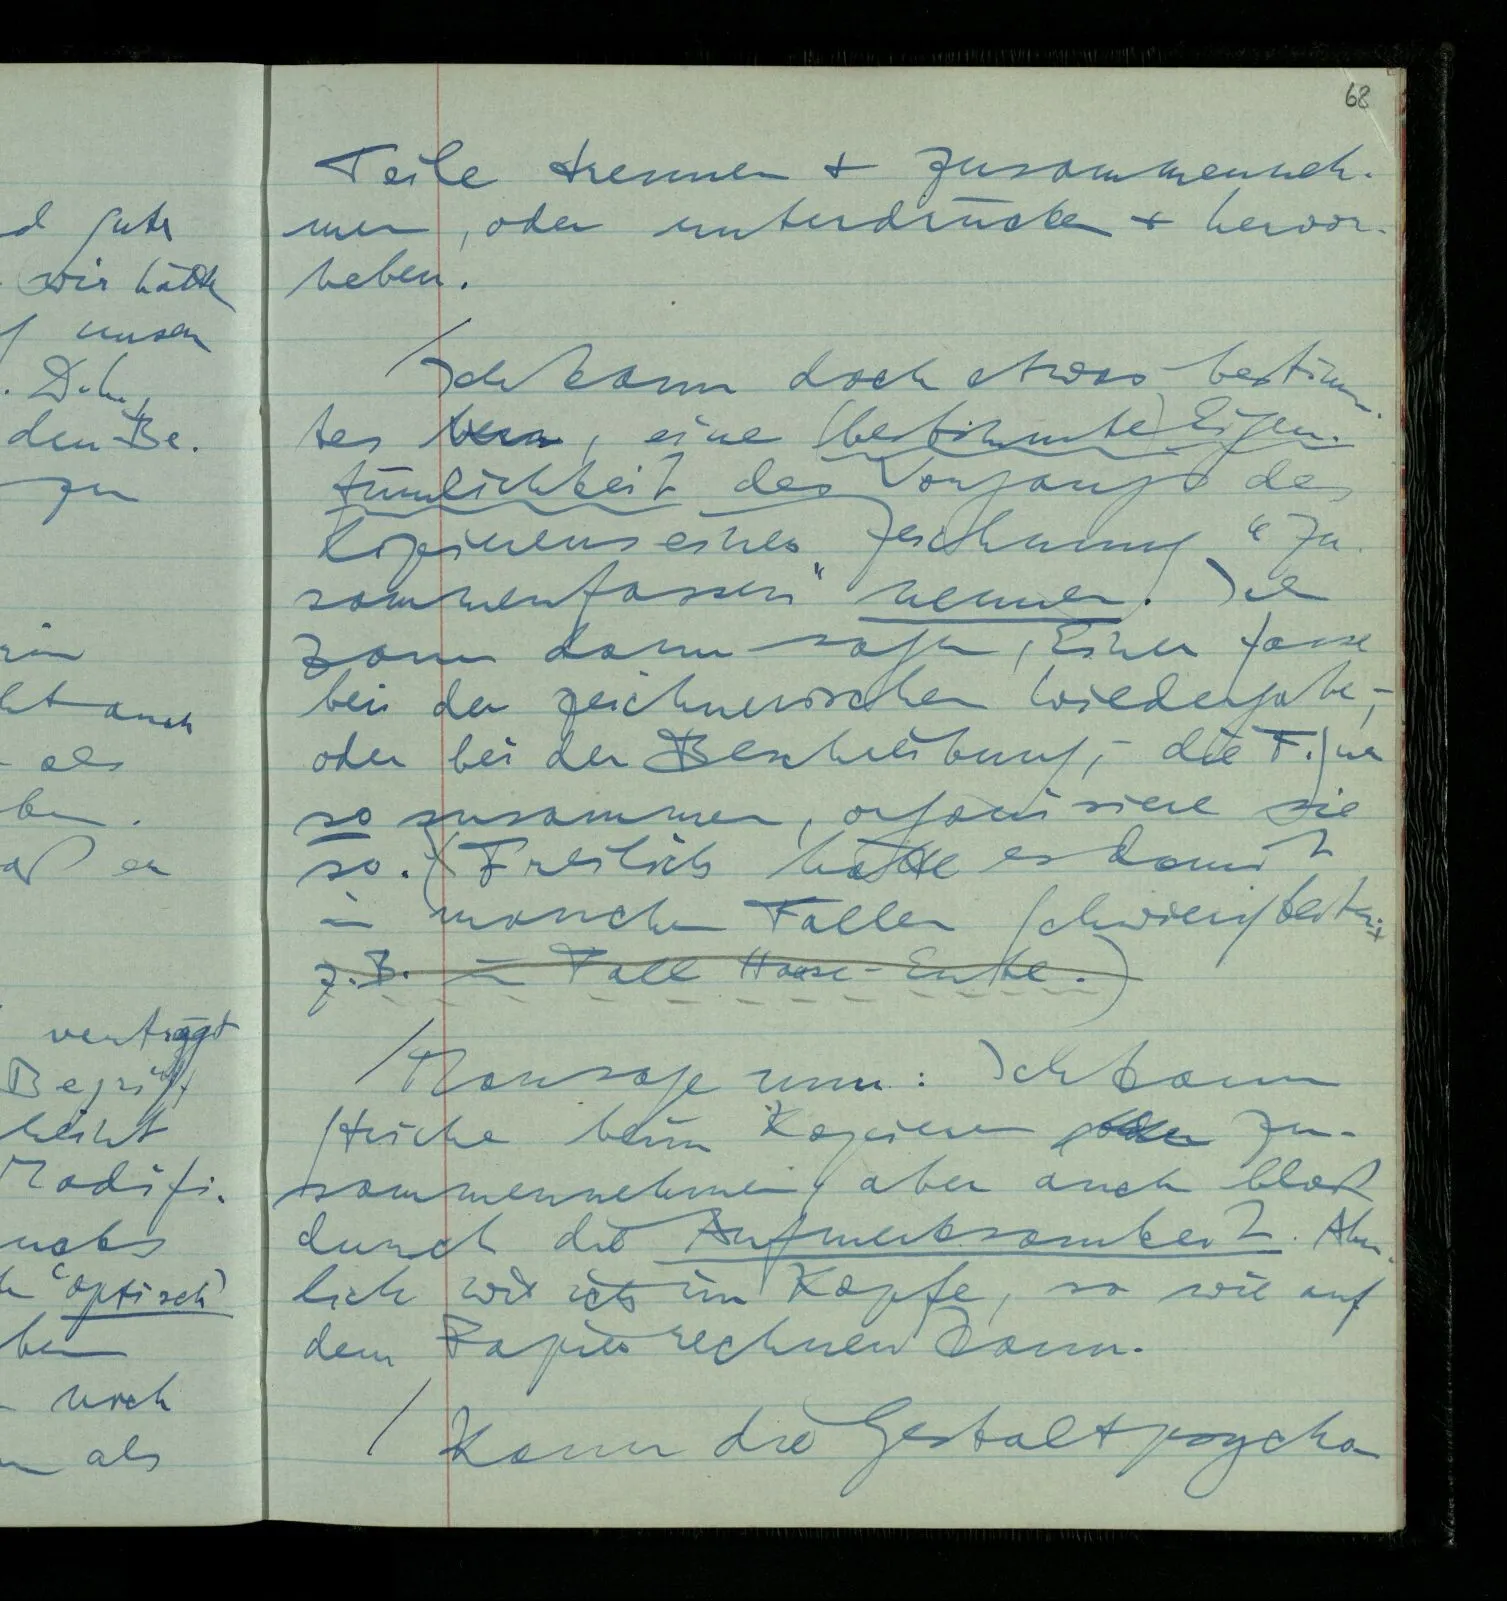 68
d gute
wir hätte
unsern
den Be.
zu
auch
als
ben.
er
verträgt
Begriff
Modifi.
"optisch"
noch
als
Teile trennen + zusammenneh-
men, oder unterdrücken + hervor-
heben.
/ Ich kann doch etwas bestimm-
tes, eine (bestimmte) Eigen-
tümlichkeit des Vorgangs des
Kopierens einer Zeichnung "Zu-
sammenfassen" nennen. Ich
kann dann sagen, Einer fasse
bei der zeichnerischen Wiedergabe, –
oder bei der Beschreibung, – die Figur
so zusammen, organisiere sie
so. (Freilich hätte es damit
in manchen Fällen Schwierigkeiten,
z.B. im Fall Hase-Ente.)
/ Man sage nun: Ich kann
Striche beim Kopieren zu-
sammennehmen, aber auch bloß
durch die Aufmerksamkeit. Ähn-
lich wie ich im Kopfe, so wie auf
dem Papier rechnen kann.
/ Kann die Gestaltpsycho